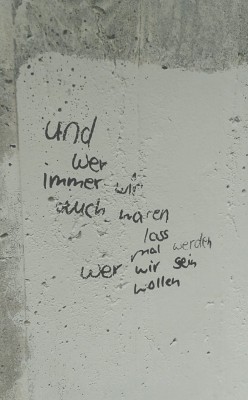 und
wer
immer wir
auch waren
lass
mal werden
wer wir sein
wollen